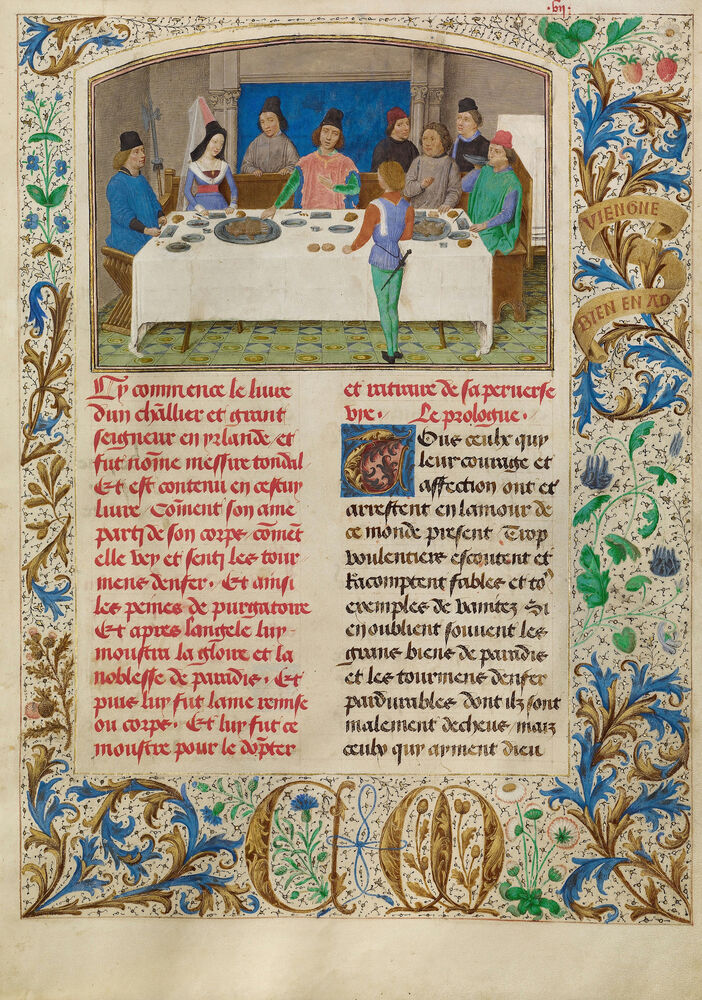 vii
VIENGNE
BIEN EN AD
Cy commence le liure
dun chãllier et grant
seigneur en yrlande et
fut nõme messire tondal
Et est contenu en cestuy
liure Cõment son ame
parti de son corps cõmẽt
elle vey et senti les tour
mens denfer. Et ainsi
les peines de purgatoire
Et apres langele luy
moustra la gloire et la
noblesse de paradis. Et
puis luy fut lame remise
ou corps. Et luy fut ce
moustre pour le dõpter
et retraire de sa peruerse
vye. Le prologue.
Tous ceulx quy
leur courage et
affection ont et
arrestent en lamour de
ce monde present Trop
voulentiers escoutent et
Racomptent fables et toꝰ
exemples de vanitez Si
en oublient souuent les
grans biens de paradis
et les tourmens denfer
pardurables dont ilz sont
malement decheus maiz
ceulx quy ayment dieu
C M